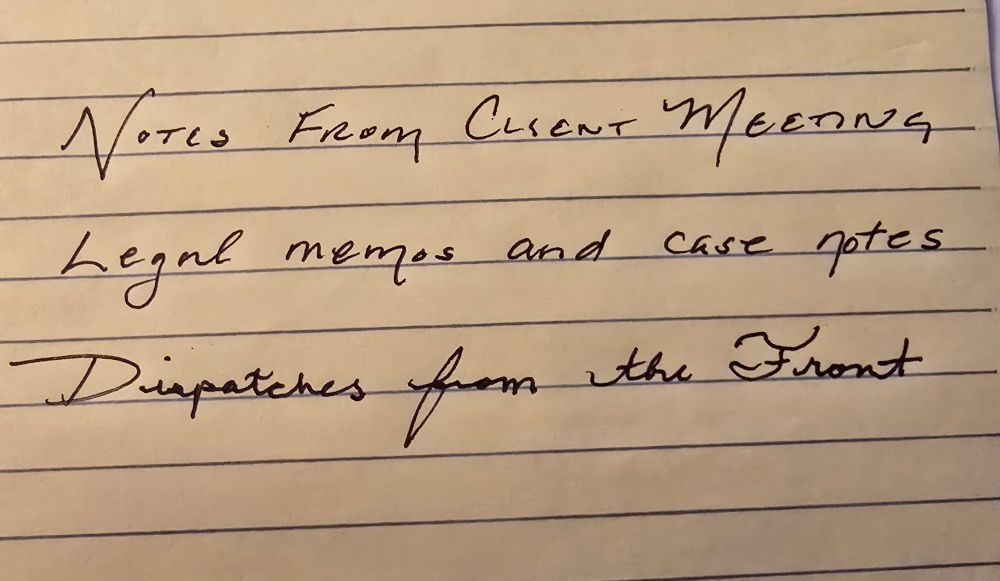 NOTES FROM CLIENT MEETING
Legal memos and case notes
Dispatches from the Front